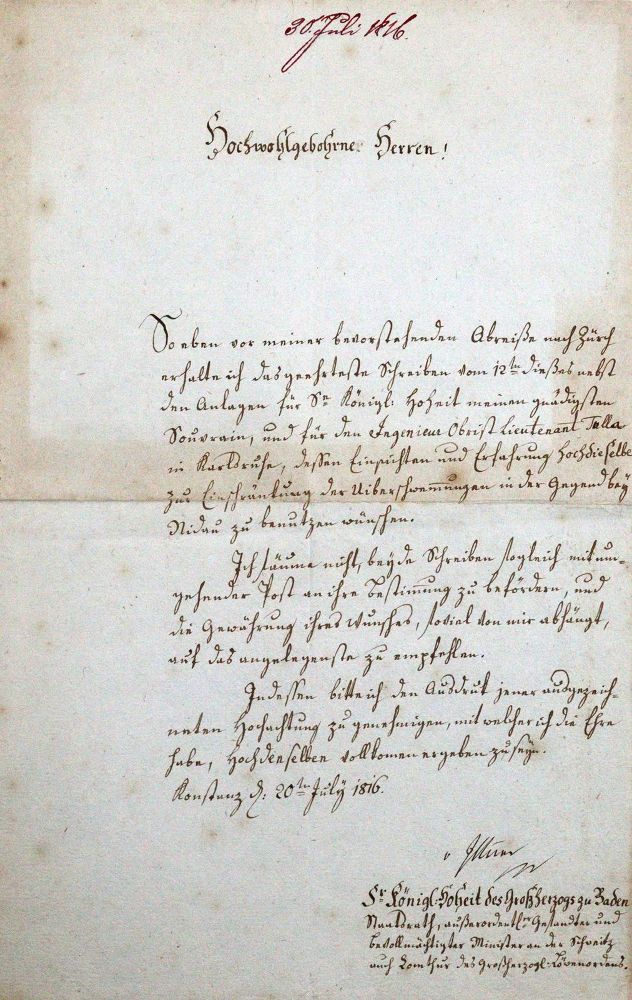 30. Juli 1816.
Hochwohlgebohrne Herren!
So eben vor meiner bevorstehenden Abreiße nach Zürch
erhalte ich das geehrteste Schreiben vom 12ten dießes nebst
den Anlagen für Se Königl: Hoheit meinen gnädigsten
Souvrain, und für den Ingenieur Obrist Lieutenant Tulla
in Karlsruhe, dessen Einsichten und Erfahrung Hochdieselbe
zur Einschränkung der Uiberschwemmungen in der Gegend bey
Nidau zu benutzen wünschen.
Ich säume nicht, beyde Schreiben sogleich mit um-
gehender Post an ihre Bestimmung zu befördern, und
die Gewährung ihres Wunsches, soviel von mir abhängt,
auf das angelegenste zu empfehlen.
Indessen bitte ich den Ausdruk jener ausgezeich-
neten Hochachtung zu genehmigen, mit welcher ich die Ehre
habe, Hochdenselben vollkomen ergeben zu seyn.
Konstanz d: 20ten July 1816.
v Ittner
Sr Königl: Hoheit des Großherzogs zu Baden
Staatsrath, außerordentlr Gesandter und
bevollmächtigter Minister an der Schweitz
auch Comthur des Großherzogl: Löwenordens.